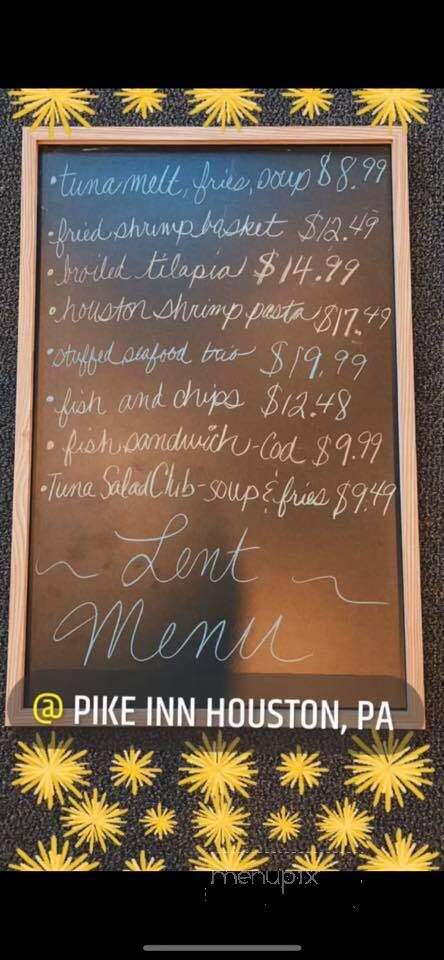 •tuna melt, fries, soup $8.99
•fried shrimp basket $12.49
•broiled tilapia $14.99
•houston shrimp pasta $17.49
•stuffed seafood trio $19.99
•fish and chips $12.48
•fish sandwich-Cod $9.99
•Tuna Salad Club-soup & fries $9.49
~ Lent ~
Menu
@ PIKE INN HOUSTON, PA
menupix